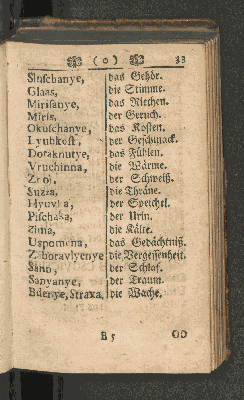 ( o ) 33
Slischanye, das Gehör.
Glaas, die Stimme.
Mirisanye, das Riechen.
Miris, der Geruch.
Okuschanye, das Kosten.
Lyubkost, der Geschmack.
Dotaknutye, das Fühlen.
Vruchinna, die Wärme.
Znoi, der Schweiß.
Suza, die Thräne.
Hyuvka, der Speichel.
Pischaka, der Urin.
Zima, die Kälte.
Uspomena, das Gedächtniß.
Zaboravlyenye die Vergessenheit.
Sann, der Schlaf.
Sanyanye, der Traum.
Bdenye, Straxa, die Wache.
B 5